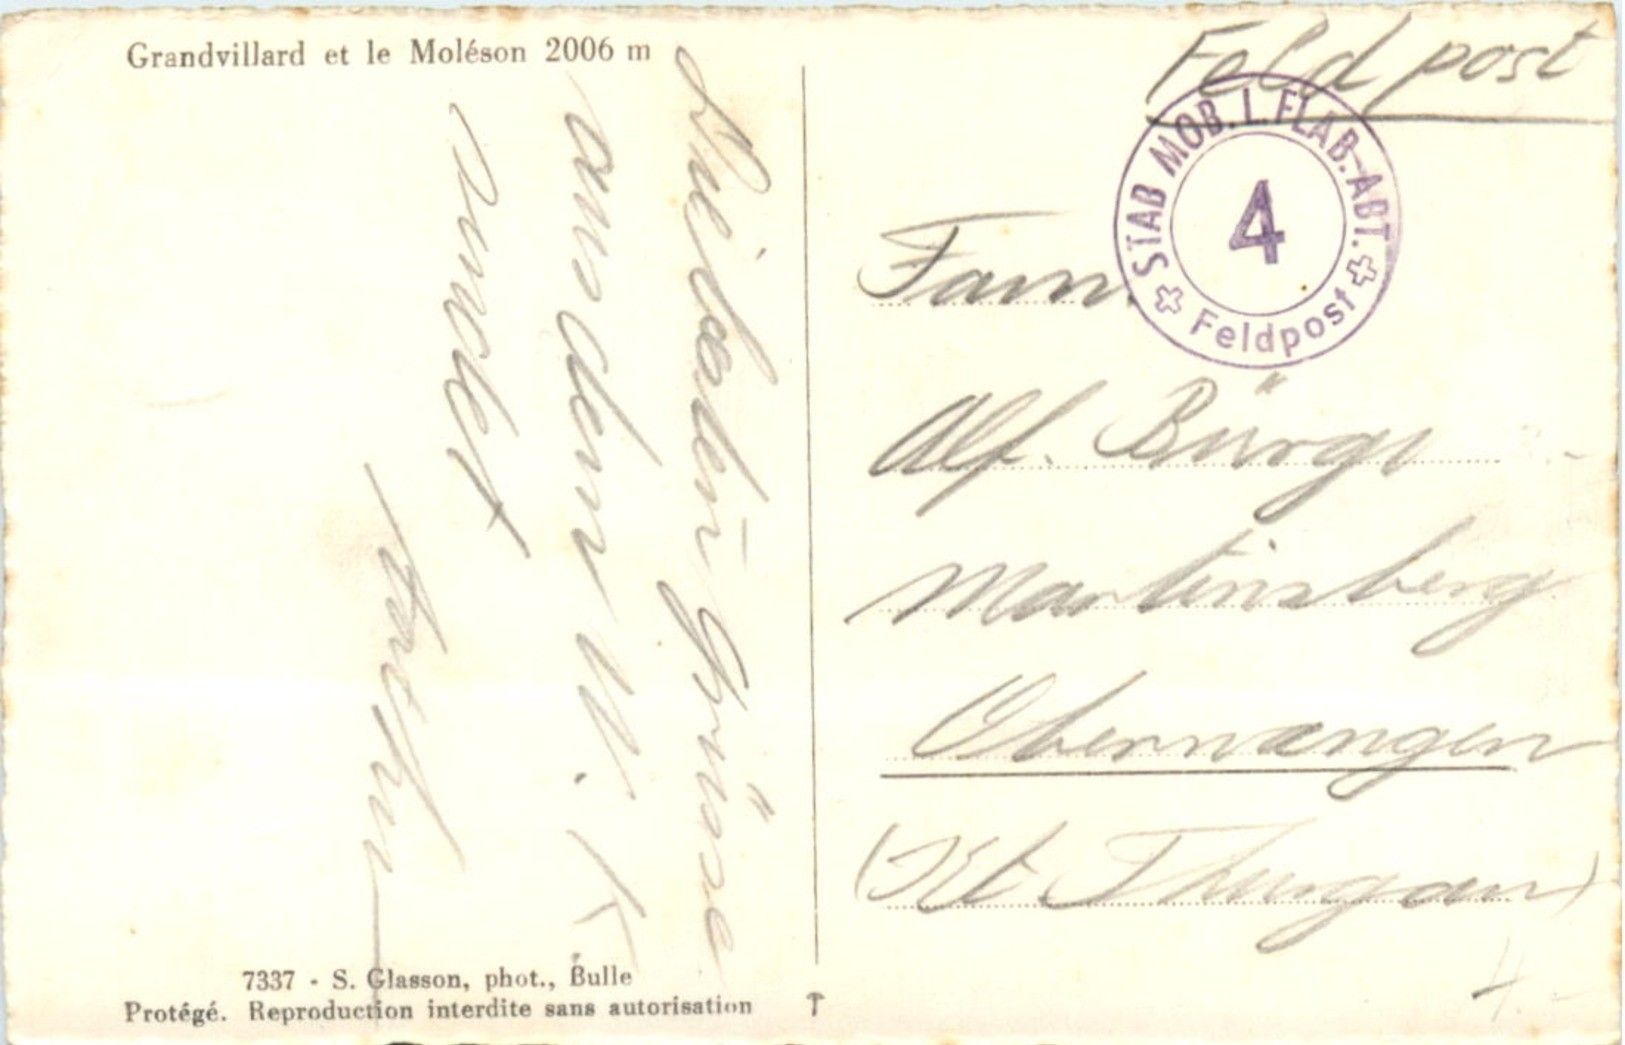 Grandvillard et le Moléson 2006 m
Die liebsten Grüsse
aus dem W. K.
sendet
7337 - S. Glasson, phot., Bulle
Protégé. Reproduction interdite sans autorisation
Feldpost
STAB MOB. L. FLAB.-ABT.
4
Feldpost
Fam.
Alf. Bürgi
Martinsberg
Oberwangen
(Kt. Thurgau)